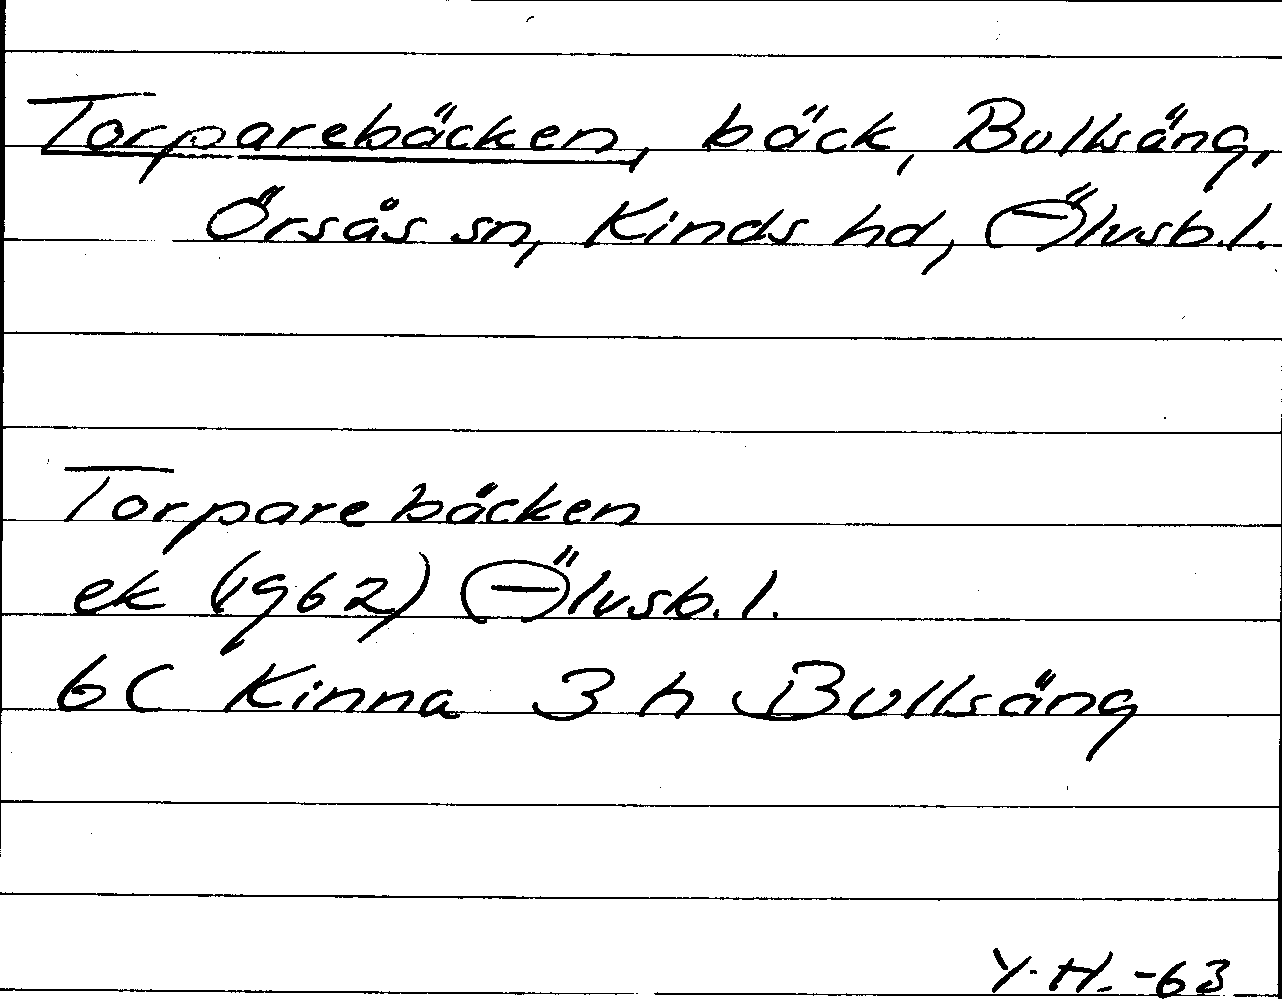 Torparebäcken, bäck, Bullsäng,
Örsås sn, Kinds hd, Älvsb. l.
Torparebäcken
ek (1962) Älvsb. l.
6C Kinna 3 h Bullsäng
Y. H. -63